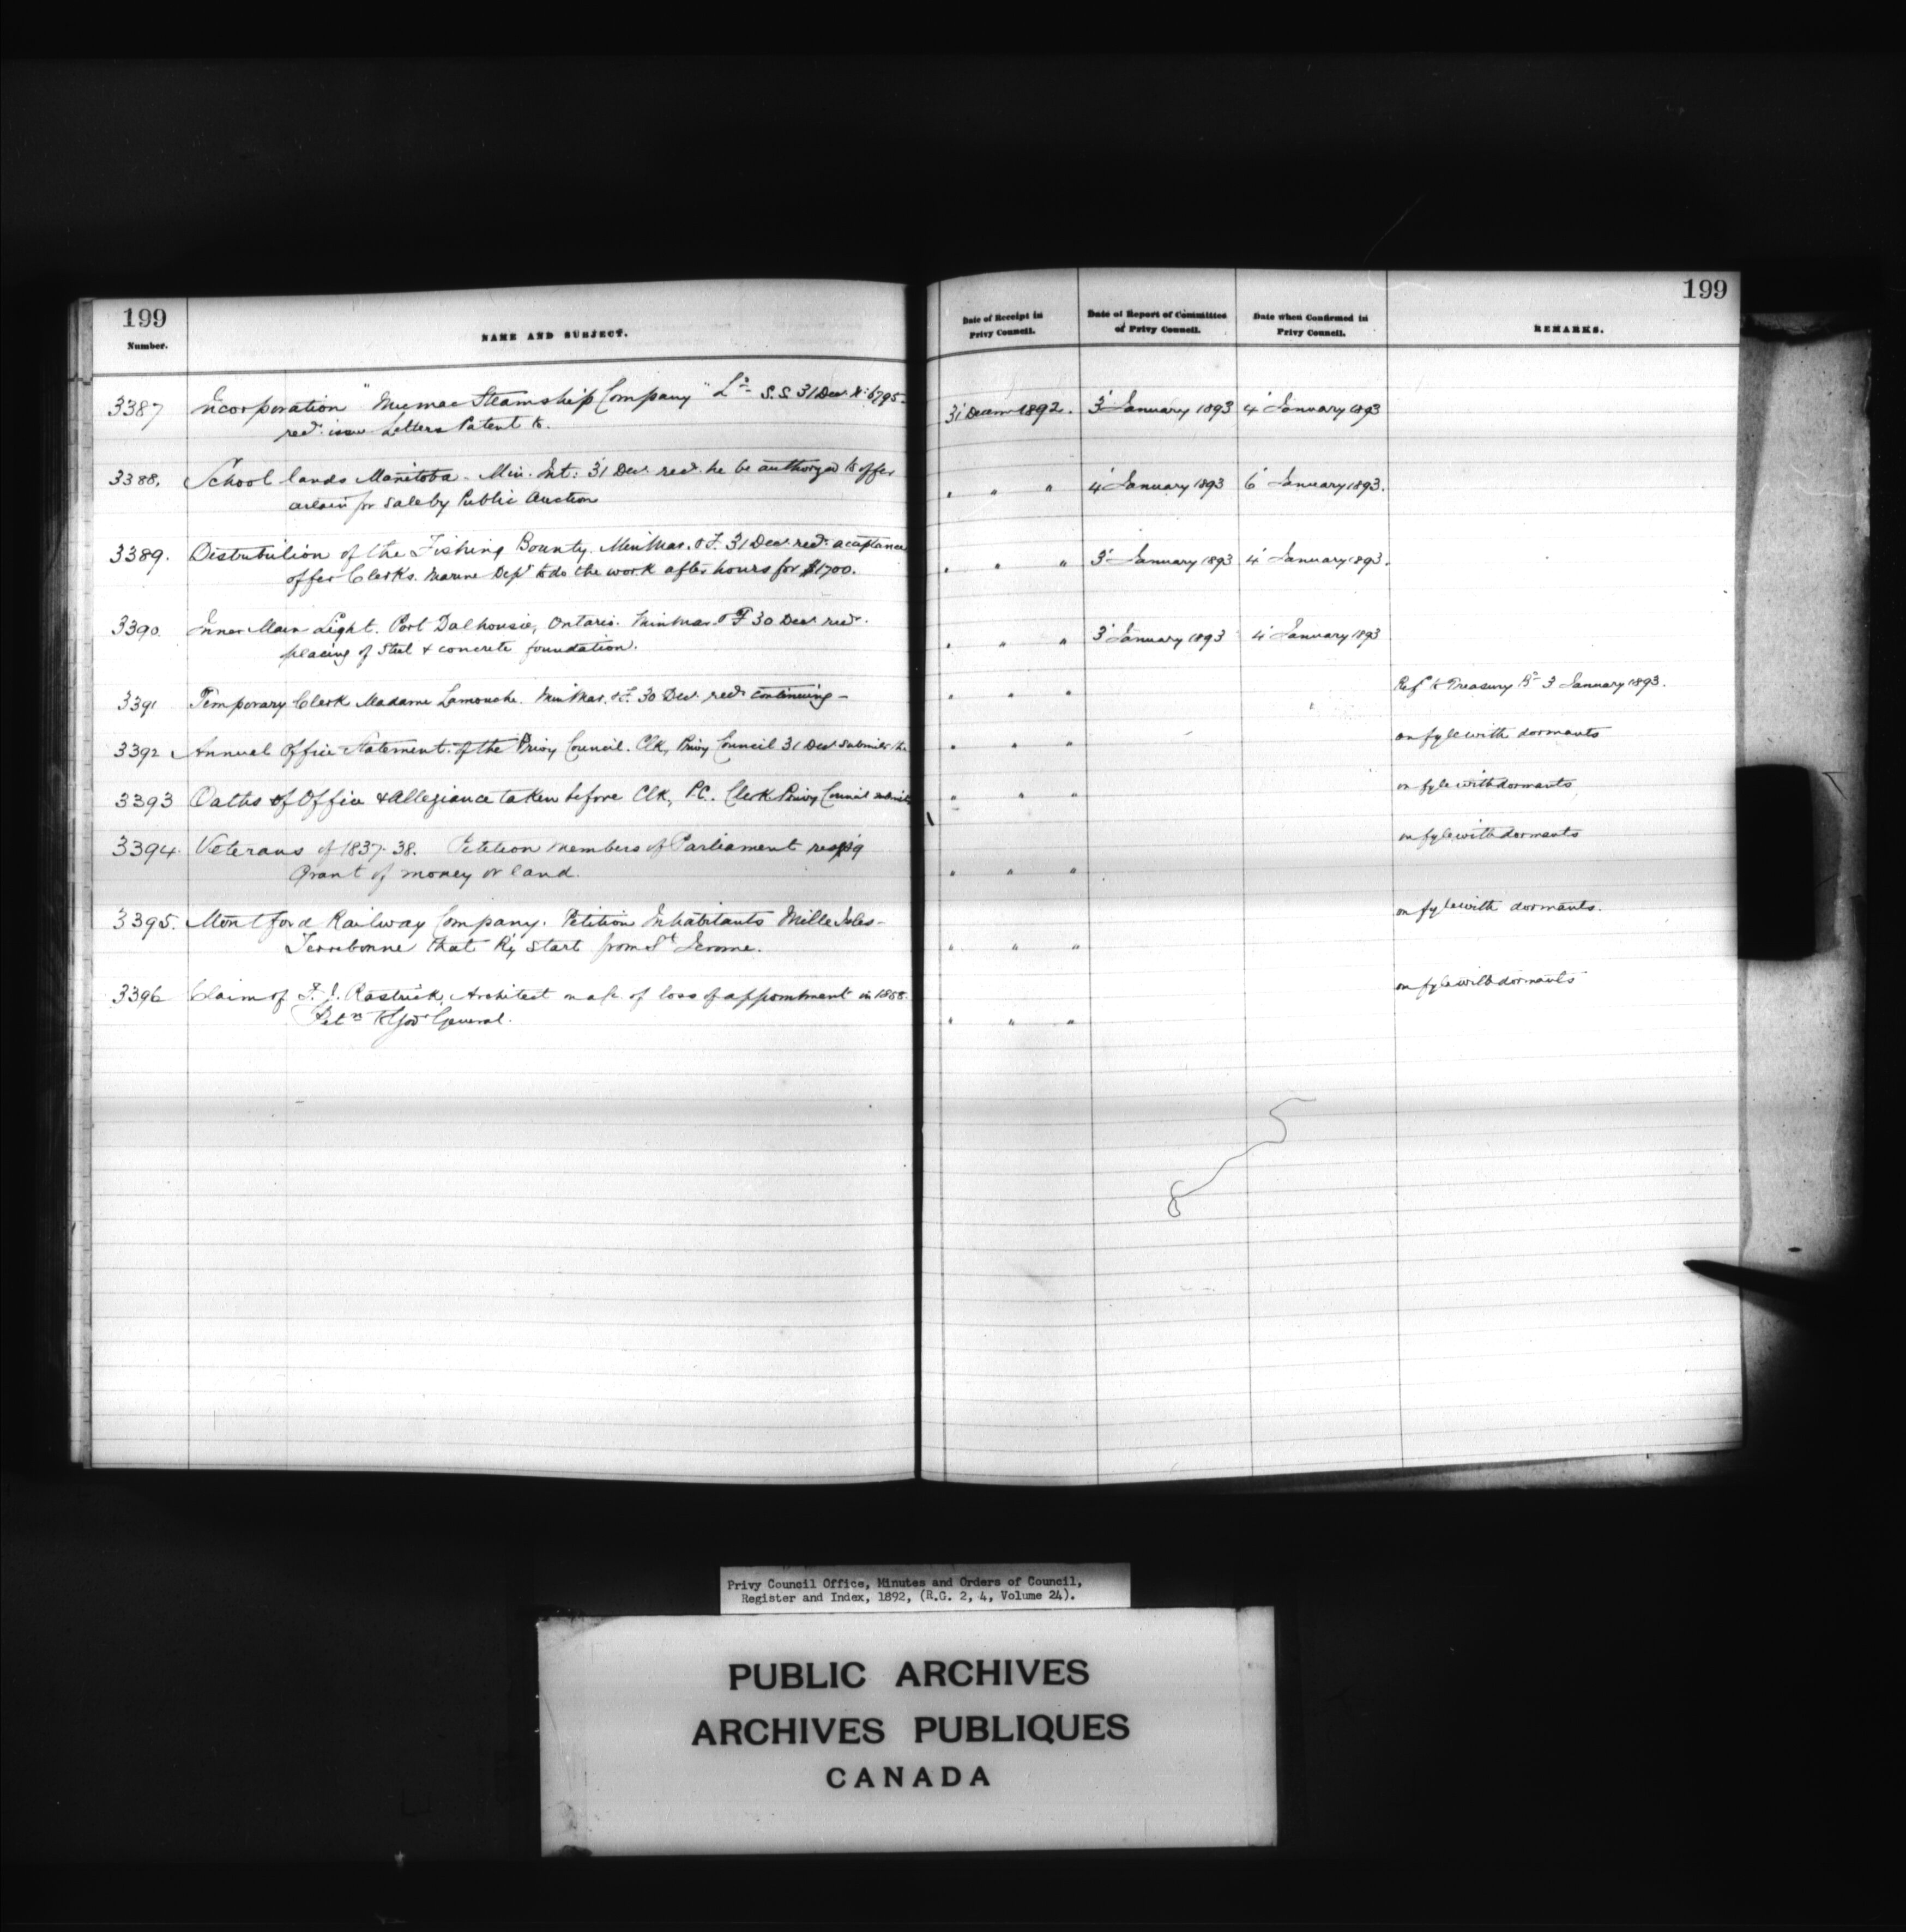 199
199
Number.
NAME AND SUBJECT.
Date of Receipt in
Privy Council.
Date of Report of Committee
of Privy Council.
Date when Confirmed in
Privy Council.
REMARKS.
3387 Incorporation "Micmac Steamship Company" Ld S.S. 31 Decr No 6795 31 Decem 1892. 3 January 1893 4 January 1893
recd issue Letters Patent to.
3388. School lands Manitoba - Min. Int: 31 Decr recd he be authorized to offer
for sale by Public Auction " " " 4 January 1893 6 January 1893.
3389. Distribution of the Fishing Bounty. Min Mar. & F. 31 Decr recd acceptance
offer Clerks. Marine Dept to do the work after hours for $1700. " " " 3 January 1893 4 January 1893.
3390. Inner Main Light. Port Dalhousie, Ontario. Min Mar. & F 30 Decr recd.
placing of Steel & concrete foundation. " " " 3 January 1893 4 January 1893
3391 Temporary Clerk Madame Lamouche. Min Mar. & F. 30 Decr recd continuing - " " " Refd to Treasury Bd 3 January 1893.
3392 Annual Office Statement of the Privy Council. Clk, Privy Council 31 Decr submits the " " " on fyle with dormants
3393 Oaths of Office & Allegiance taken before Clk, P.C. Clerk Privy Council submits " " " on fyle with dormants
3394. Veterans of 1837-38. Petition Members of Parliament respg on fyle with dormants
Grant of money or land. " " "
3395. Montford Railway Company. Petition Inhabitants Mille Isles - on fyle with dormants.
Terrebonne that Ry start from St Jerome. " " "
3396 Claim of F. J. Rastrick, Architect of loss of appointment in 18 on fyle with dormants
Petn to Govr General. " " "
Privy Council Office, Minutes and Orders of Council,
Register and Index, 1892, (R.G. 2, 4, Volume 24).
PUBLIC ARCHIVES
ARCHIVES PUBLIQUES
CANADA